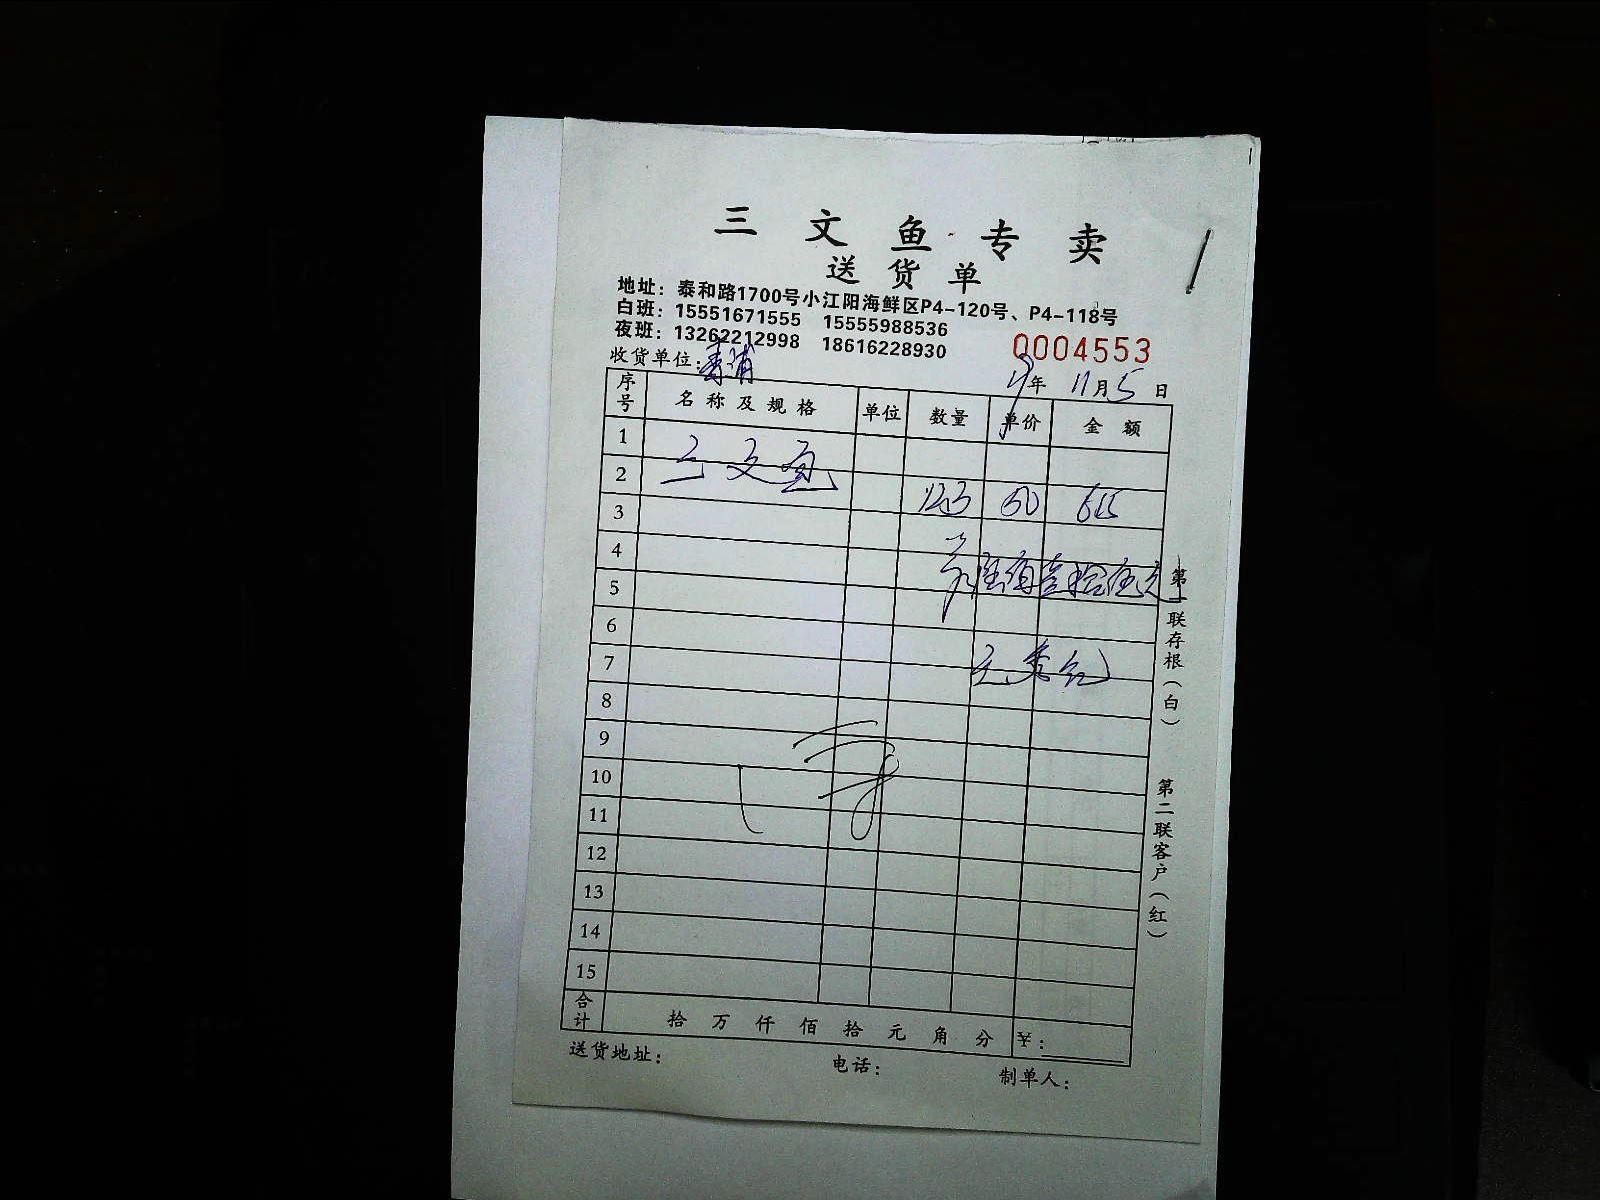 三文鱼专卖
送货单
地址：泰和路1700号小江阳海鲜区P4-120号、P4-118号
白班：15551671555 15555988536
夜班：13262212998 18616228930
0004553
收货单位：
19年 11月5日
序号 名称及规格 单位 数量 单价 金额
1 三文鱼
2 12.3 50 615
3
4 陆佰壹拾伍元
5
6
7
8
9
10
11
12
13
14
15
合计 拾 万 仟 佰 拾 元 角 分 ￥：
送货地址： 电话： 制单人：
第一联存根（白）
第二联客户（红）